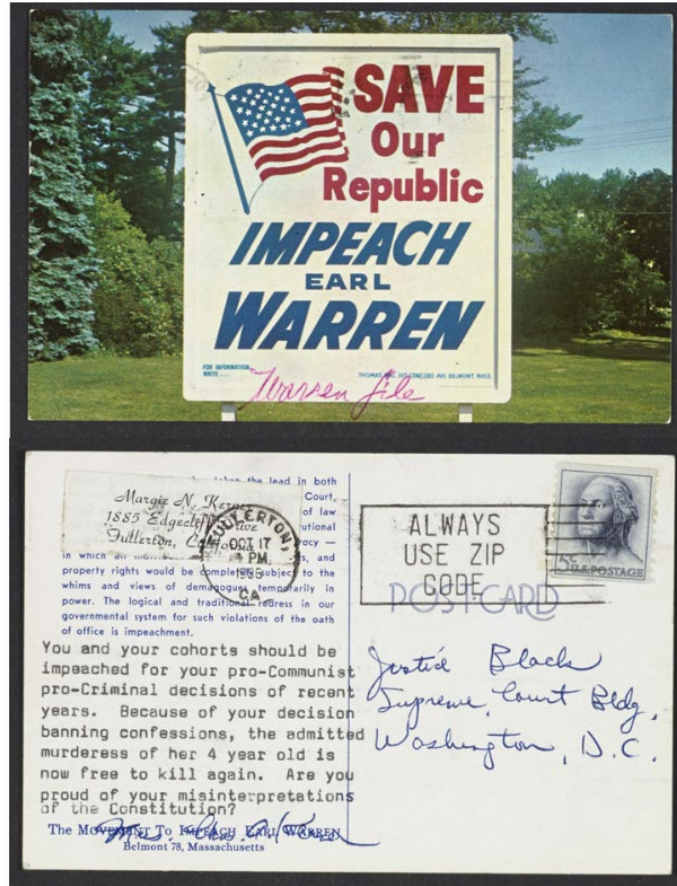 SAVE
Our
Republic
IMPEACH
EARL
WARREN
FOR INFORMATION
WRITE . . .
CONCORD AVE BELMONT, MASS.
Warren file
taken the lead in both
Court,
of law
utional
ocy —
in which all
s, and
property rights would be completely subject to the
whims and views of demagogues temporarily in
power. The logical and traditional redress in our
governmental system for such violations of the oath
of office is impeachment.
Margie N.
1885 Edgecliff Drive
Fullerton, California
FULLERTON,
OCT 17
PM
CA
ALWAYS
USE ZIP
CODE
5c U.S. POSTAGE
POST CARD
You and your cohorts should be
impeached for your pro-Communist
pro-Criminal decisions of recent
years. Because of your decision
banning confessions, the admitted
murderess of her 4 year old is
now free to kill again. Are you
proud of your misinterpretations
of the Constitution?
Mrs. Chas.
The MOVEMENT TO IMPEACH EARL WARREN
Belmont 78, Massachusetts
Justice Black
Supreme Court Bldg.
Washington, D.C.